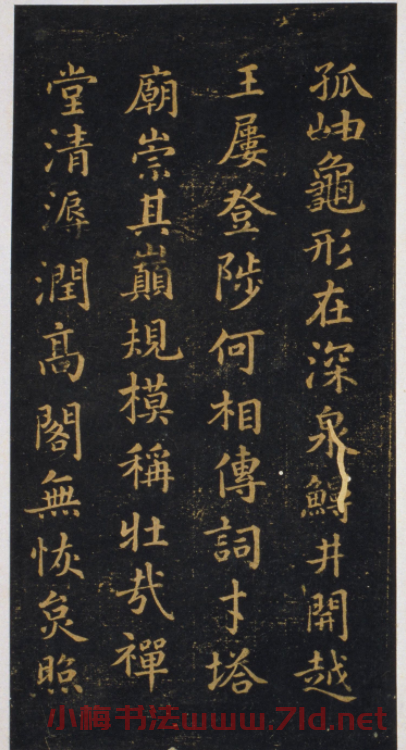 孤岫龜形在深泉鱘井開越
王屢登陟何相傳詞才塔
廟崇其巔規模稱壯哉禪
堂清溽潤高閣無恢炱照
小梅书法www.7ld.net